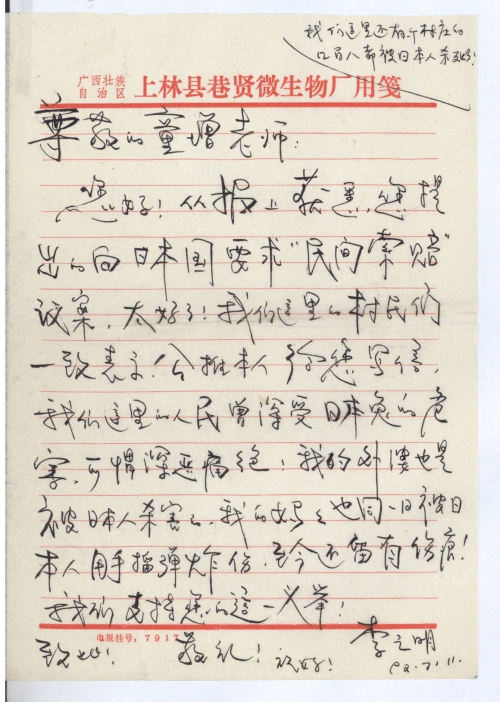 我们这里还有个村庄的
几百人都被日本人杀死!
广西壮族
自治区
上林县巷贤微生物厂用笺
尊敬的童增老师:
您好!从报上获悉,您提
出的向日本国要求"民间索赔"
议案,太好了!我们这里的村民们
一致表示!公推本人给您写信,
我们这里的人民曾深受日本鬼的危
害,可谓深恶痛绝!我的外婆也是
被日本人杀害的,我的妈妈也同一日被日
本人用手榴弹炸伤,至今还留有伤痕!
我们支持您的这一义举!
电报挂号:7917
致此! 敬礼! 祝好! 李之明
92.7.11.